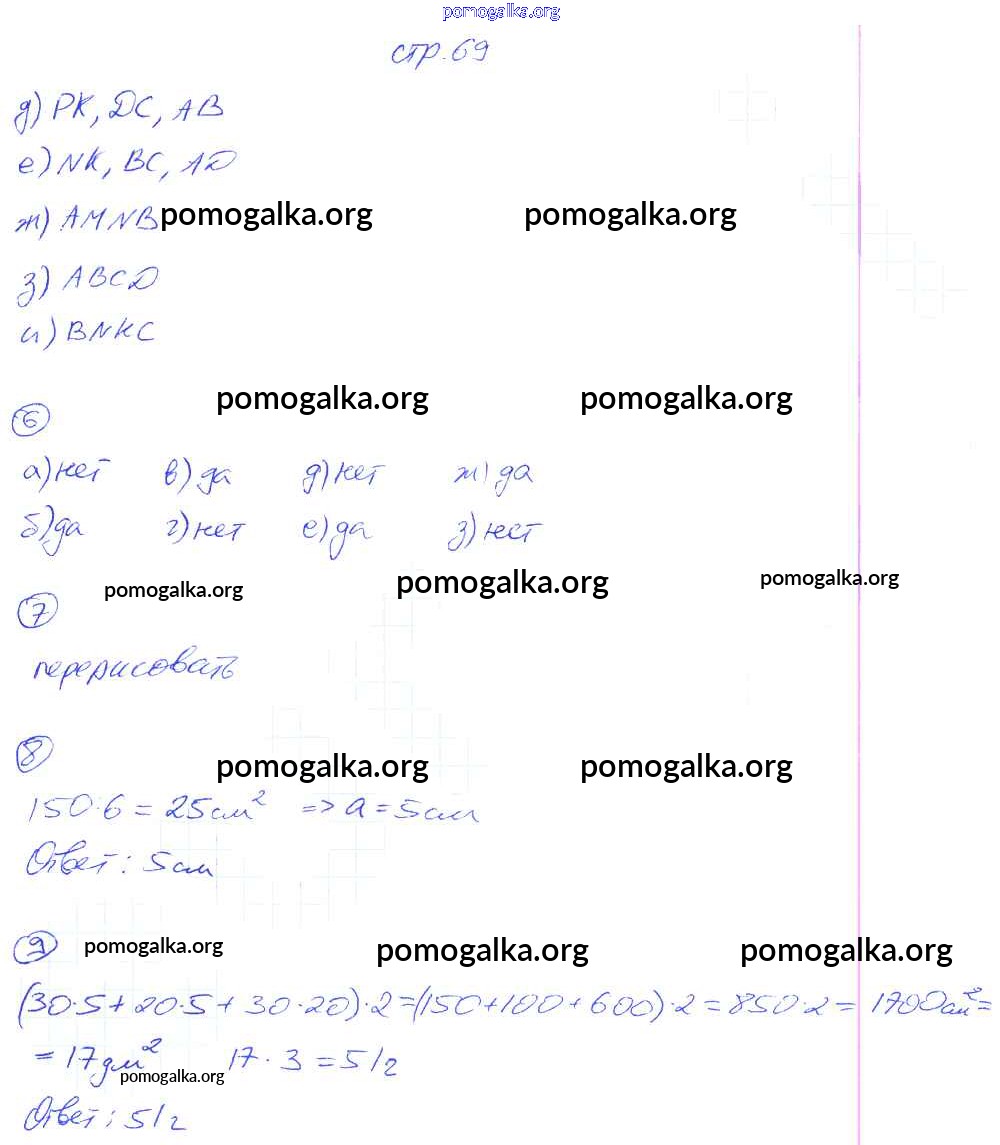 pomogalka.org
стр.69
д) PK, DC, AB
е) NK, BC, AD
ж) AMNB pomogalka.org pomogalka.org
з) ABCD
и) BNKC
pomogalka.org pomogalka.org
6
а) нет в) да д) нет ж) да
б) да г) нет е) да з) нет
pomogalka.org pomogalka.org pomogalka.org
7
перерисовать
pomogalka.org pomogalka.org
8
150:6 = 25см² => a = 5см
Ответ: 5см
9 pomogalka.org pomogalka.org pomogalka.org
(30·5+20·5+30·20)·2=(150+100+600)·2=850·2= 1700см²=
= 17дм² 17·3=51г
pomogalka.org
Ответ: 51г